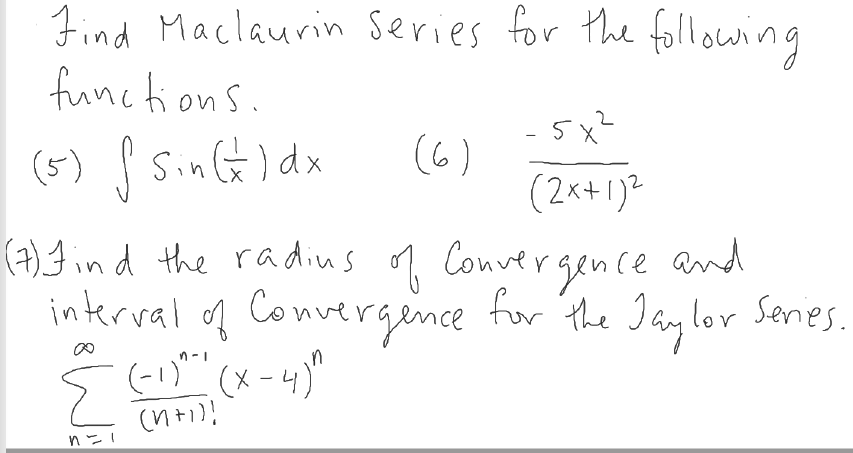 Find Maclaurin Series for the following
functions.
(5) ∫ Sin(1/x) dx (6) -5x²/(2x+1)²
(7) Find the radius of Convergence and
interval of Convergence for the Taylor Series.
∞
Σ (-1)ⁿ⁻¹/(n+1)! (x-4)ⁿ
n=1